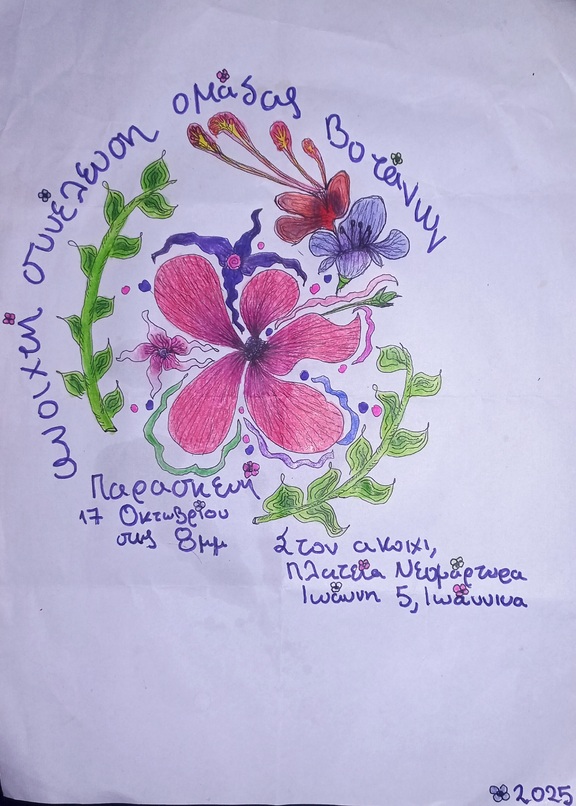 ανοιχτή συνέλευση ομάδας Βοτάνων
Παρασκευή
17 Οκτωβρίου
στις 8μμ
Στον ακοιχι,
πλατεία Νεομάρτυρα
Ιωάννη 5, Ιωάννινα
2025